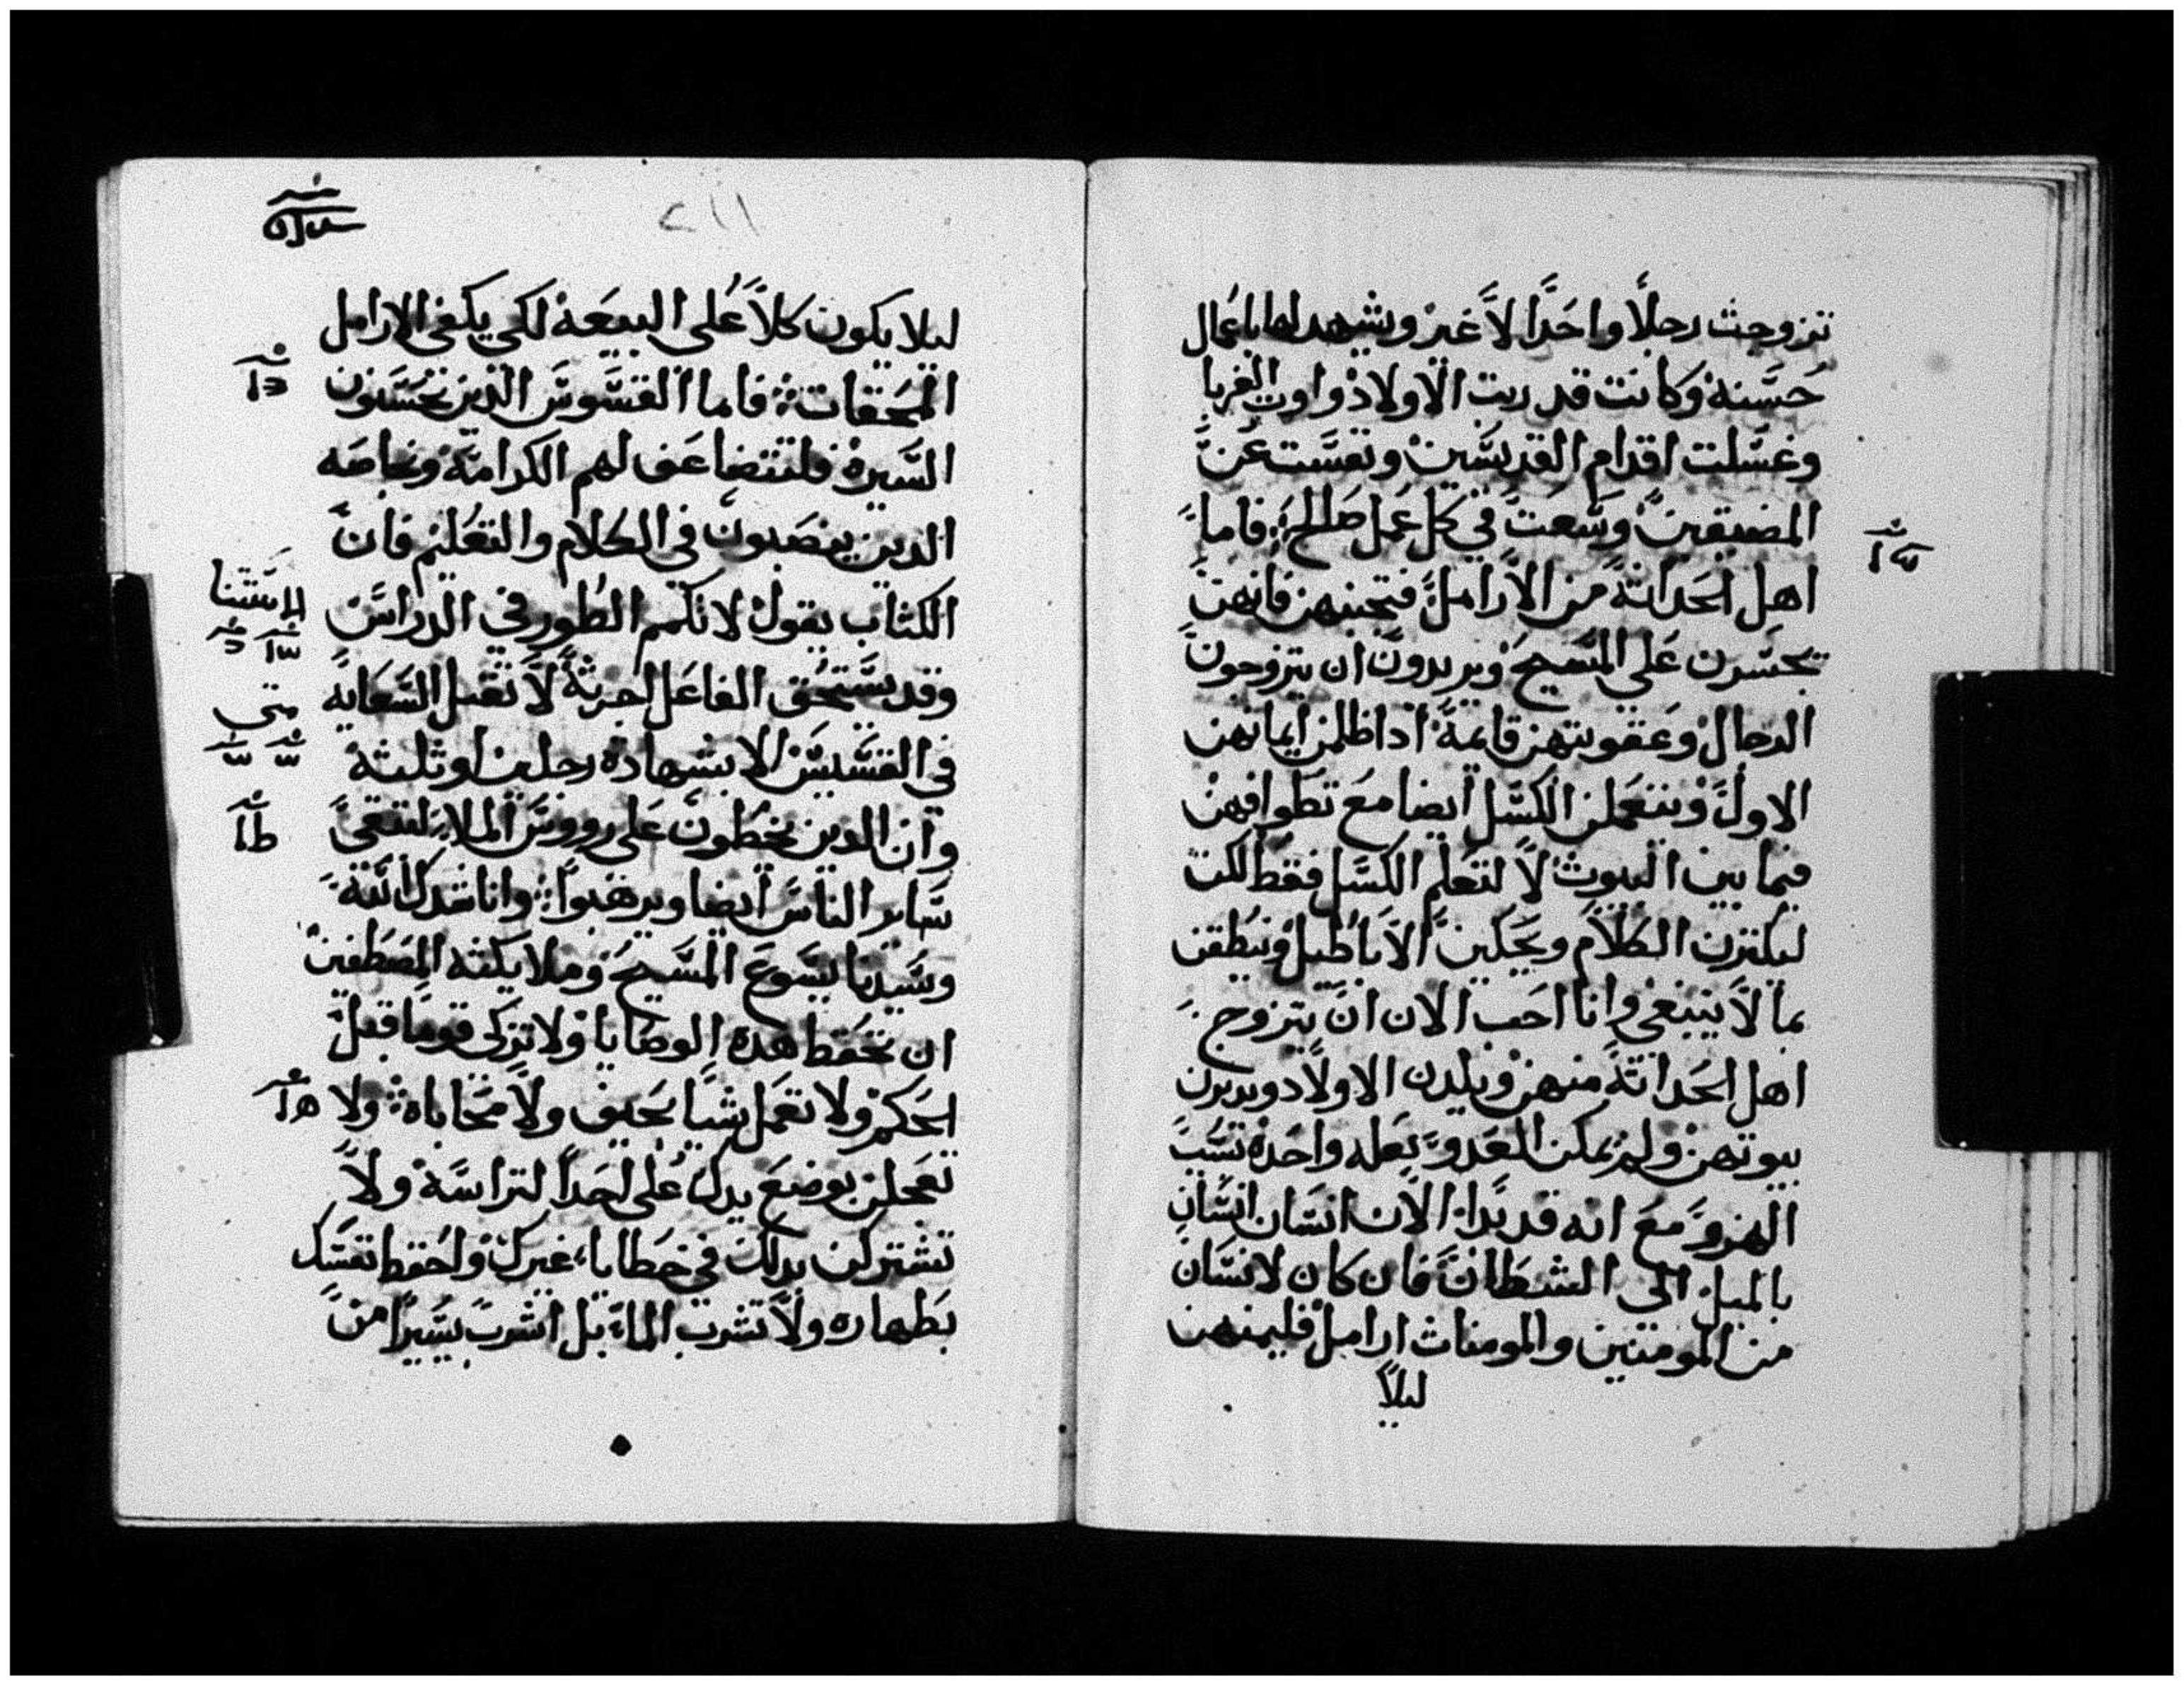 تزوجت رجلاً واحَدًا لاَّ غير ويشهد لها باعمال
حُسَّنة وكانت قد ربت الاولاد واوت الغربا
وغسَّلت اقدام القديسَّين ونفسَّت عَن
المضيقين وسَّعَت في كل عمل صَالح ܀ فاما
اهل الحَداثة من الارامل فتجنبهن فانهن
تجسَّرن عَلي المسَّيح ويريدون ان يتزوجون
الرجال وعَقوبتهن قايمة اذا ظلمن ايمانهن
الاول ويتعَملن الكسَّل ايضا معَ تطَوافهن
فيما بين البيوت لاَ لتعَلم الكسَّل فقط لكن
ليكترن الكلام ويحَكين الاباطَيل وينطَقن
بما لاَ ينبغي وانا احَب الان ان يتزوج
اهل الحَداثة منهن ويلدن الاولاد ويدبرن
بيوتهن ولم يمكن العَدو بعَله واحَدة تسَبب
الهزو معَ انه قد بدا الان انسَان انسَان
بالميل الي الشيطَان فان كان لانسَان
من المومنين والمومنات ارامل فليمنهن
ليلا
٢١١
ليلا يكون كلاً عُلي البيعَة لكي يكفي الارامل
المحَقات ܀ فاما القسَّوسَ الذين يحَسَنون
السَّيرة فلتتضاعَف لهم الكرامة وبخاصَه
الدين ينصَبون في الكلام والتعَليم فان
الكتاب يقول لا تكمم الطور في الدراسَ
وقد يسَّتحَق الفاعَل اجرته لاَ تقبل السَّعَايه
في القسَّيسَ الا بشهادة رجلين او ثلثة
وان الدين يخطون عَلي رووسَ الملا لتتقي
سَّاير الناسَ ايضا ويرهبوا ܀ وانا شدك الله
وسَّيدنا يسَّوعَ المسَّيح وملايكته المصَطفين
ان تحَفظ هده الوصَايا ولا تزكي قوما قبل
الحَكم ولا تعَمل شيا بحَيف ولاَ محَاباة ܀ ولا
تعَجلن بوضعَ يدك عَلي احَدا لتراسَّة ولا
تشتركن بدلك في خطايا غيرك واحَفظ نفسَّك
بطَهاره ولاَ تشرب الماء بل اشرب يسَّيرا من
الاستثنا
متي